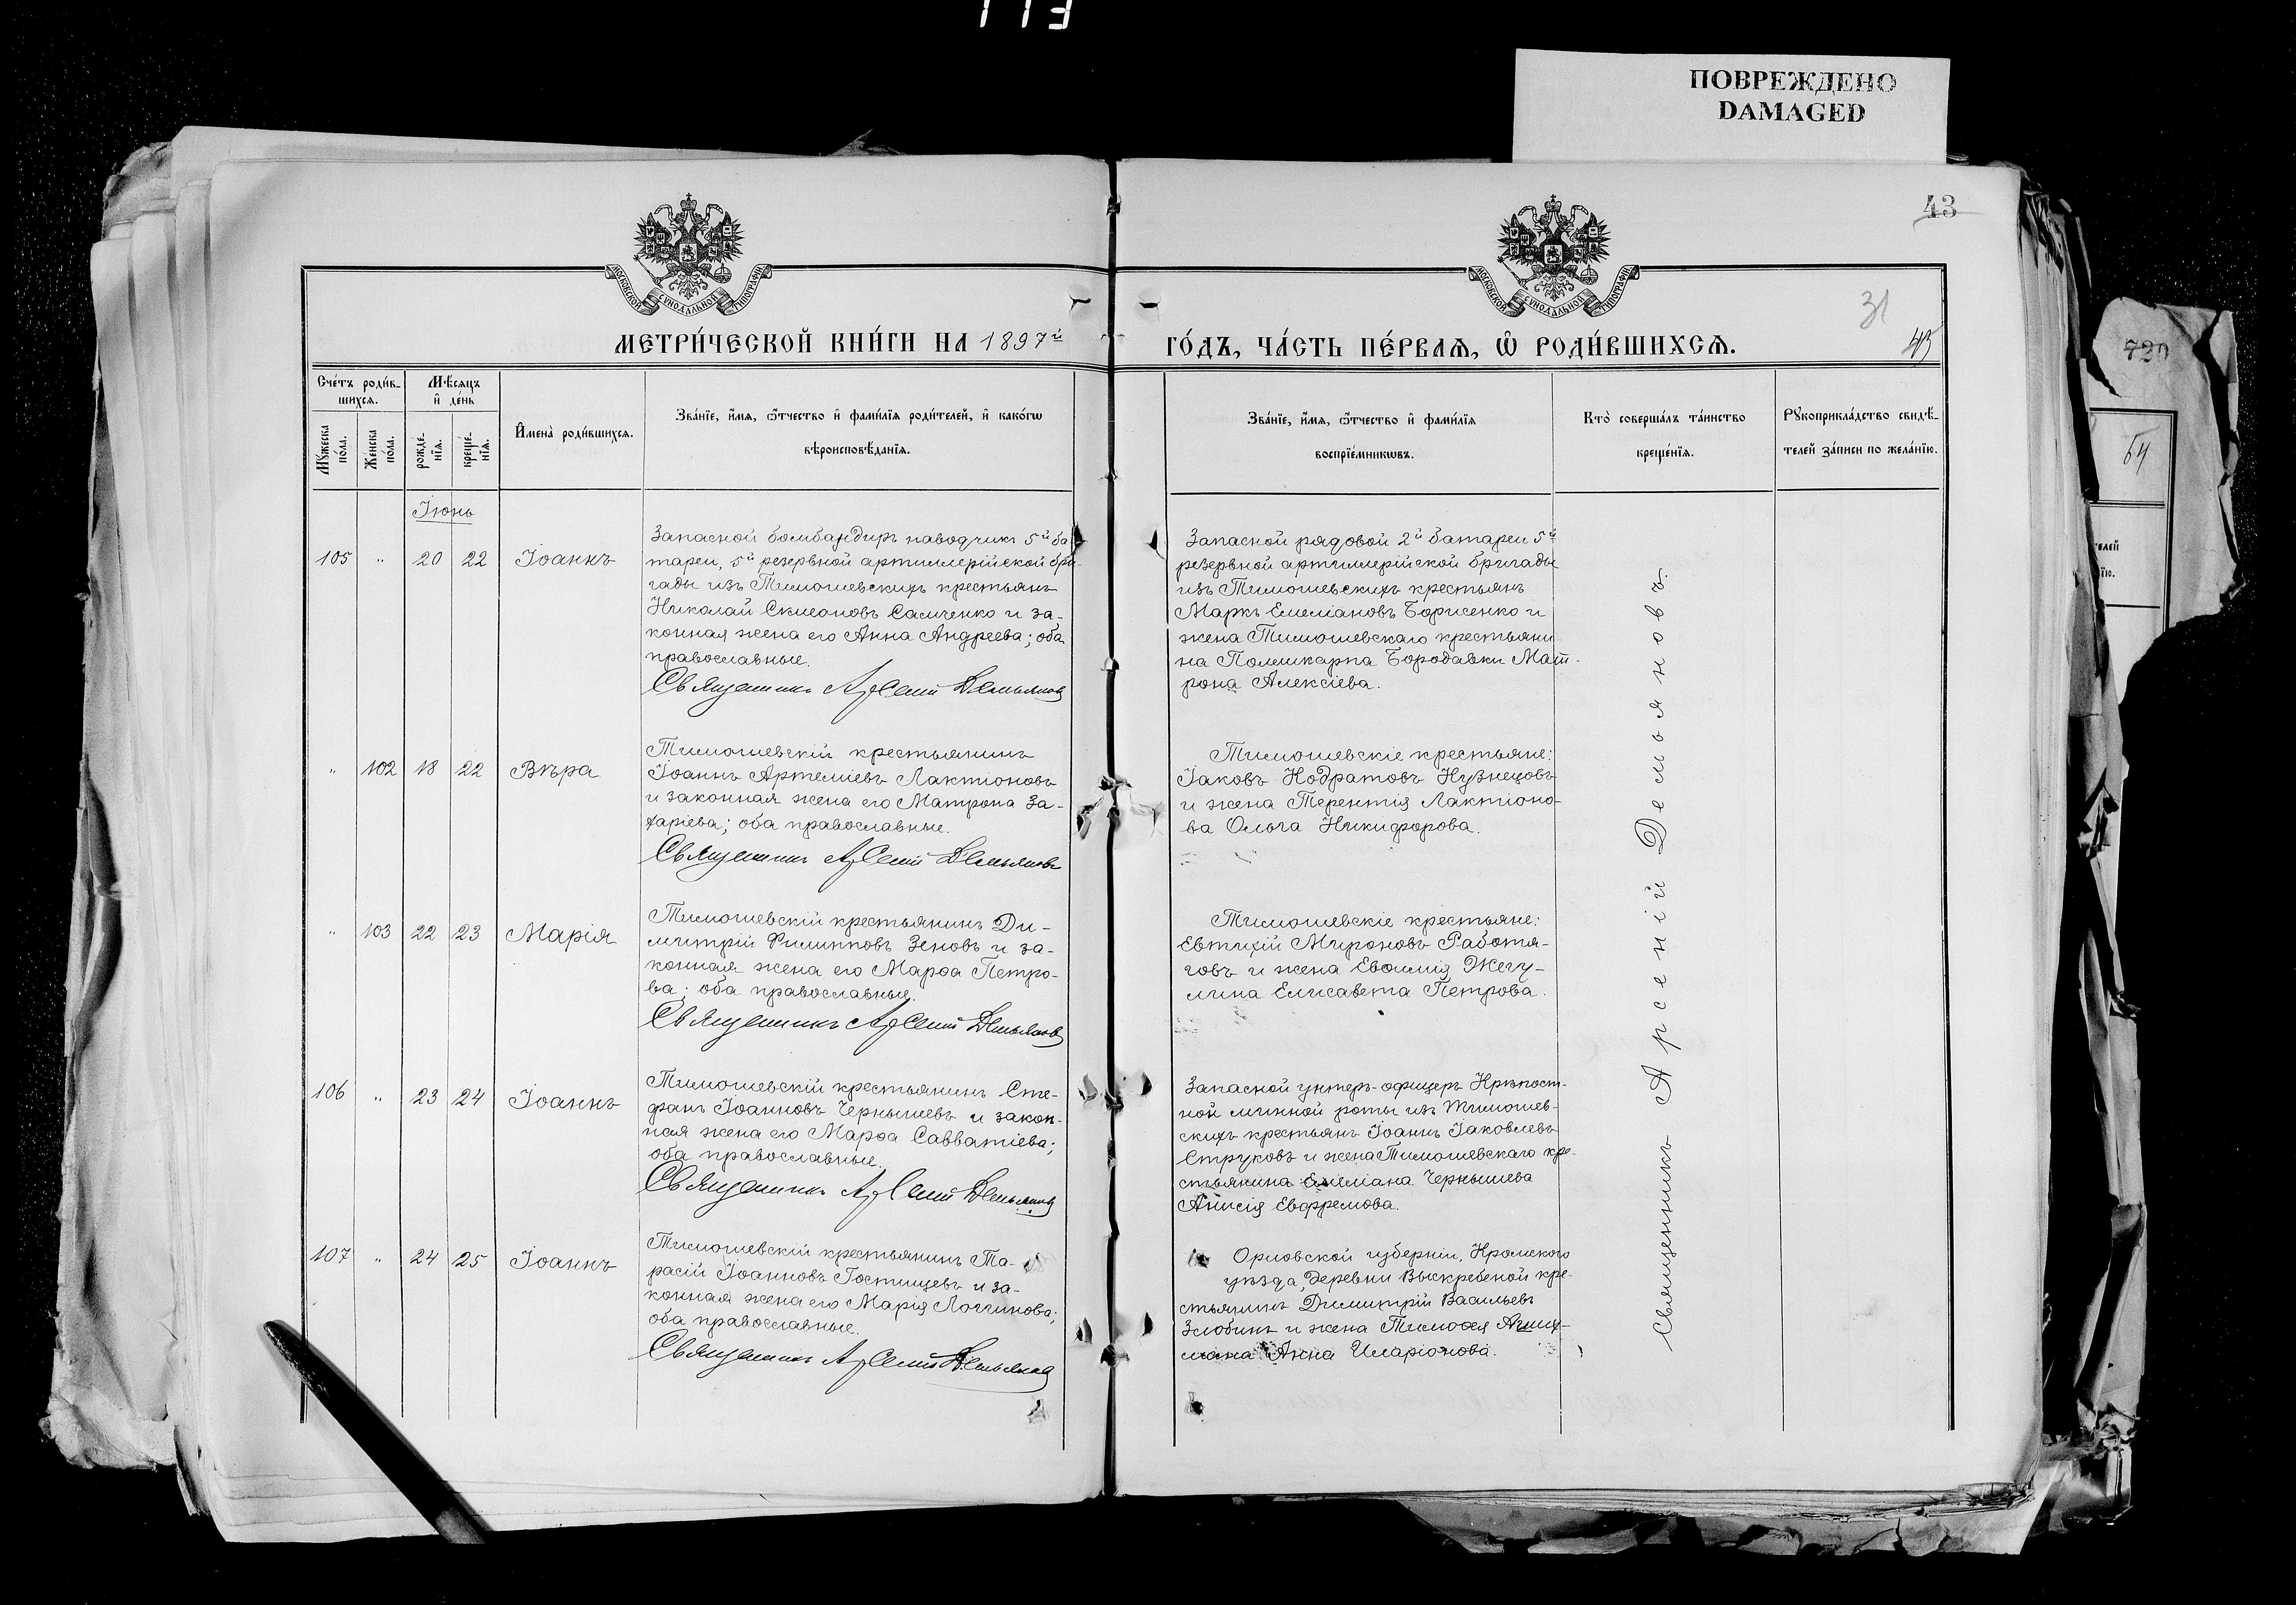 113
ПОВРЕЖДЕНО
DAMAGED
43
МОСКОВСКОЙ СѴНОДАЛЬНОЙ ТИПОГРАФІИ
МОСКОВСКОЙ СѴНОДАЛЬНОЙ ТИПОГРАФІИ
31
МЕТРИ́ЧЕСКОЙ КНИ́ГИ НА 1897й
ГО́ДЪ, ЧА́СТЬ ПЕ́РВАЯ, Ѡ РОДИ́ВШИХСЯ.
43
729
64
Сче́тъ роди́в-
шихся.
Мѣ́сяцъ
и҆ де́нь
Мꙋ́жеска
по́ла.
Же́нска
по́ла.
рожде-
нїя.
креще́-
нїя.
И҆мена̀ роди́вшихся.
Зва́нїе, и҆́мя, ѻ҆́тчество и҆ фами́лїя роди́телей, и҆ како́гѡ
вѣроисповѣ́данїя.
Зва́нїе, и҆́мя, ѻ҆́тчество и҆ фами́лїя
воспрїе́мникѡвъ.
Кто̀ соверша́лъ та́инство
креще́нїя.
Рꙋкоприкла́дство свидѣ́-
телей за́писи по жела́нїю.
Іюнь
105 " 20 22 Іоаннъ
Запасной бомбандиръ наводчикъ 5й ба
тареи, 5й резервной артиллерійской бри-
гады изъ Тимошевскихъ крестьянъ
Николай Симеоновъ Самченко и за-
конная жена его Анна Андреева; оба
православные.
Священникъ Арсеній Демьяновъ
Запасной рядовой 2й батареи 5й
резервной артиллерійской бригады
изъ Тимошевскихъ крестьянъ
Маркъ Емеліановъ Борисенко и
жена Тимошевскаго крестьяни
на Поликарпа Бородавки Мат-
рона Алексіева.
" 102 18 22 Вѣра
Тимошевскій крестьянинъ
Іоаннъ Артеміевъ Лактіоновъ
и законная жена его Матрона За-
харіева; оба православные.
Священникъ Арсеній Демьяновъ
Тимошевскіе крестьяне:
Іаковъ Кодратовъ Кузнецовъ
и жена Терентія Лактіоно-
ва Ольга Никифорова.
" 103 22 23 Марія
Тимошевскій крестьянинъ Ди-
митрій Филипповъ Зеновъ и за-
конная жена его Марѳа Петро-
ва; оба православные.
Священникъ Арсеній Демьяновъ
Тимошевскіе крестьяне:
Евтихій Мироновъ Работя-
говъ и жена Евѳимія Жегу-
лина Елисавета Петрова.
106 " 23 24 Іоаннъ
Тимошевскій крестьянинъ Сте-
фанъ Іоанновъ Чернышевъ и закон-
ная жена его Марѳа Савватіева;
оба православные.
Священникъ Арсеній Демьяновъ
Запасной унтеръ-офицеръ Крѣпост-
ной минной роты изъ Тимошев-
скихъ крестьянъ Іоаннъ Іаковлевъ
Струковъ и жена Тимошевскаго кре-
стьянина Емеліана Чернышева
Анисія Евфремова.
107 " 24 25 Іоаннъ
Тимошевскій крестьянинъ Та-
расій Іоанновъ Гостищевъ и за-
конная жена его Марія Логгинова;
оба православные.
Священникъ Арсеній Демьяновъ
Орловской губерніи, Кромскаго
уѣзда, деревни Выскребеной кре-
стьянинъ Димитрій Васильевъ
Злобинъ и жена Тимоѳея
Анна Иларіонова.
Священникъ Арсеній Демьяновъ.